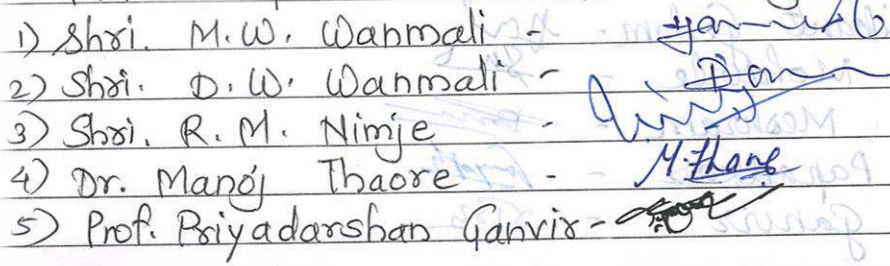 1) Shri. M.W. Wanmali -
2) Shri. D.W. Wanmali -
3) Shri. R.M. Nimje -
4) Dr. Manoj Thaore - M. Thaore
5) Prof. Priyadarshan Ganvir -